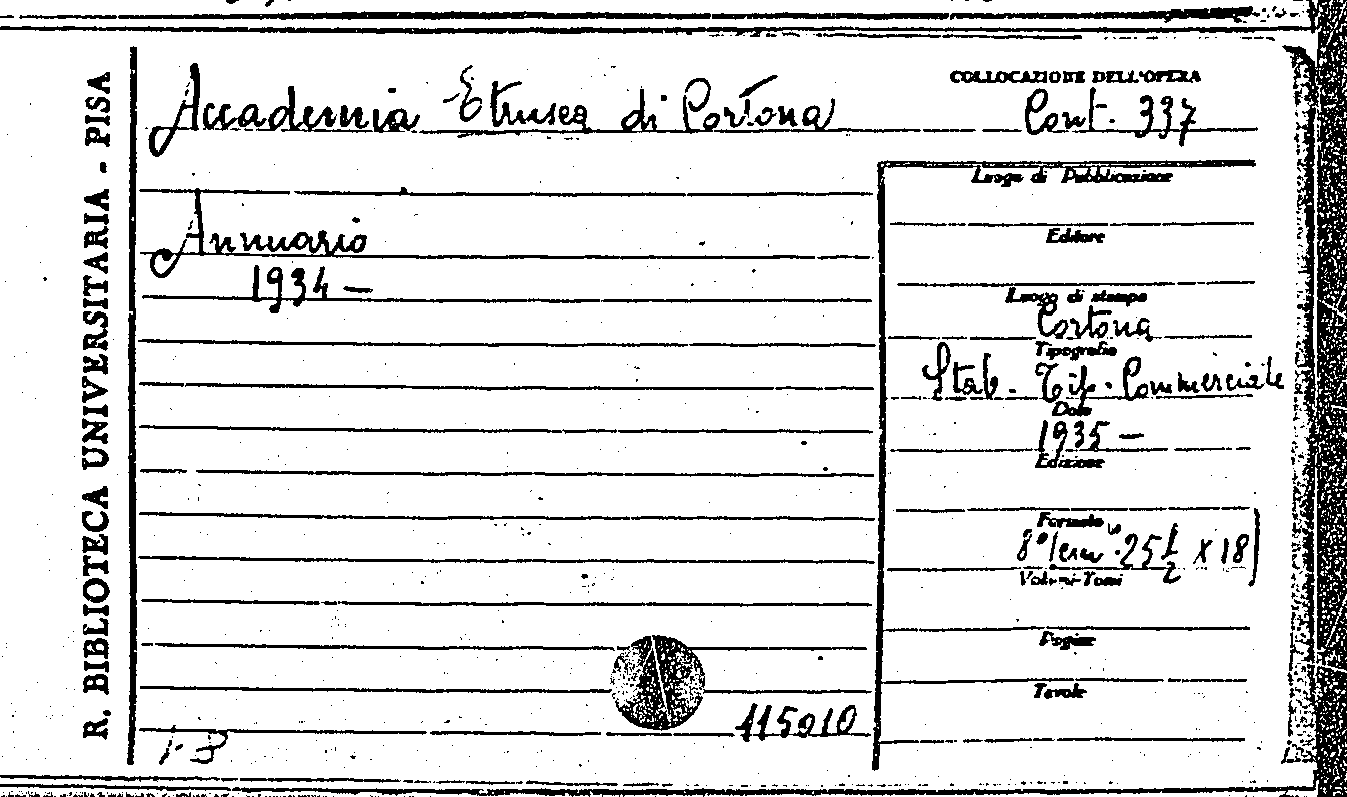 R. BIBLIOTECA UNIVERSITARIA - PISA
Accademia Etrusca di Cortona
Annuario
1934 —
1-3
115910
COLLOCAZIONE DELL'OPERA
Cont. 337
Luogo di Pubblicazione
Editore
Luogo di stampa
Cortona
Tipografia
Stab. Tip. Commerciale
Data
1935 —
Edizione
Formato
8° (cm. 25 1/2 x 18)
Volumi-Tomi
Pagine
Tavole